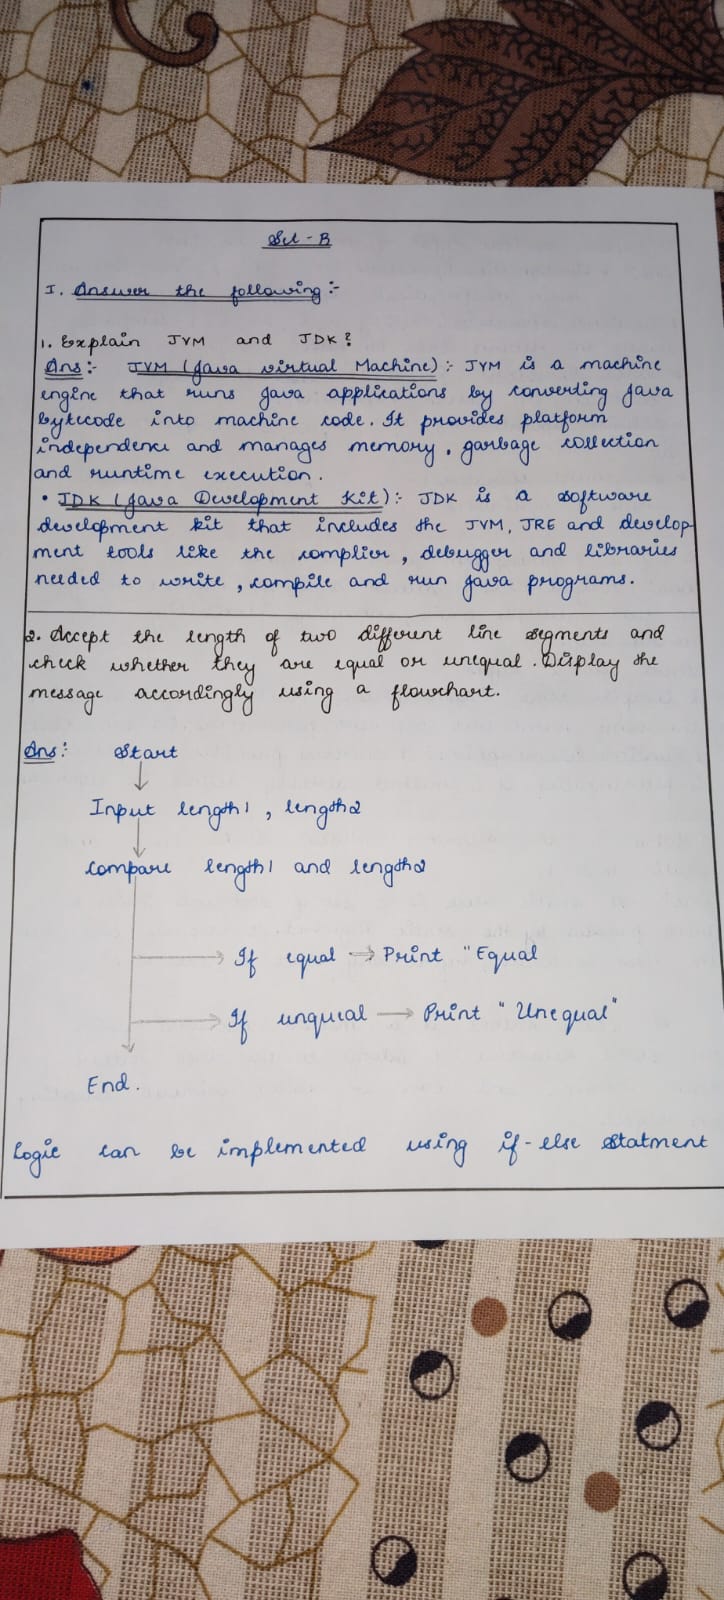 Set - B
I. Answer the following :-
1. Explain JVM and JDK?
Ans :- JVM (Java virtual Machine) :- JVM is a machine
engine that runs Java applications by converting Java
bytecode into machine code. It provides platform
independence and manages memory, garbage collection
and runtime execution.
• JDK (Java Development Kit) :- JDK is a software
development kit that includes the JVM, JRE and develop-
ment tools like the complier, debugger and libraries
needed to write, compile and run Java programs.
2. Accept the length of two different line segments and
check whether they are equal or unequal. Display the
message accordingly using a flowchart.
Ans: Start
↓
Input length1, length2
↓
Compare length1 and length2
If equal → Print "Equal
If unqueal → Print "Unequal"
End.
Logic can be implemented using if-else statment